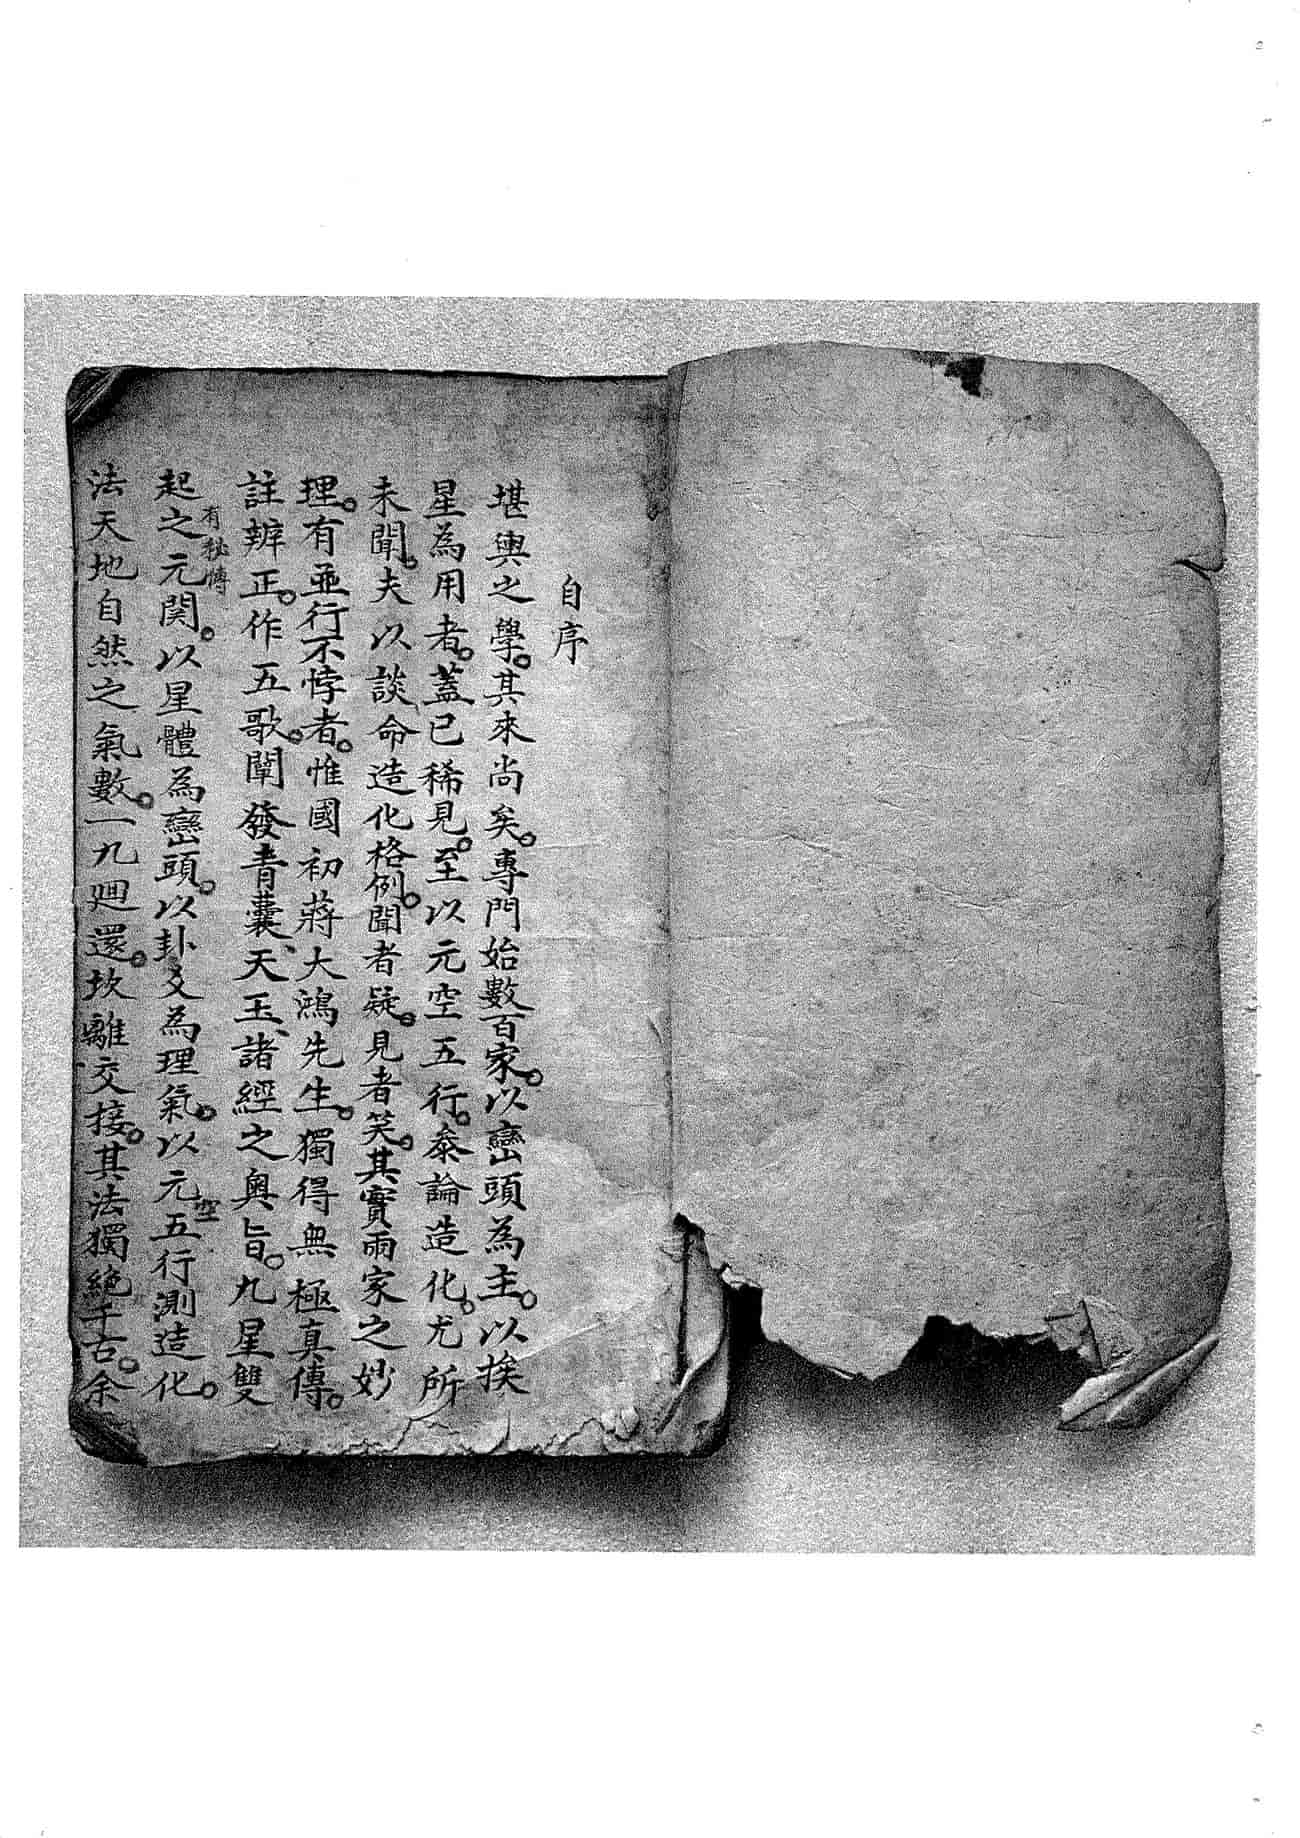 自序
堪輿之學。其來尚矣。專門始數百家。以巒頭為主。以挨
星為用者。蓋已稀見。至以元空五行。泰論造化。尤所
未聞。夫以談命造化格例。聞者疑。見者笑。其實兩家之妙
理。有並行不悖者。惟國初蔣大鴻先生。獨得無極真傳。
註辨正。作五歌。闡發青囊、天玉、諸經之奧旨。九星雙
有秘傳
起之元関。以星體為巒頭。以卦爻為理氣。以元空五行測造化。
法天地自然之氣數。一九廻還。坎離交接。其法獨絶千古。余